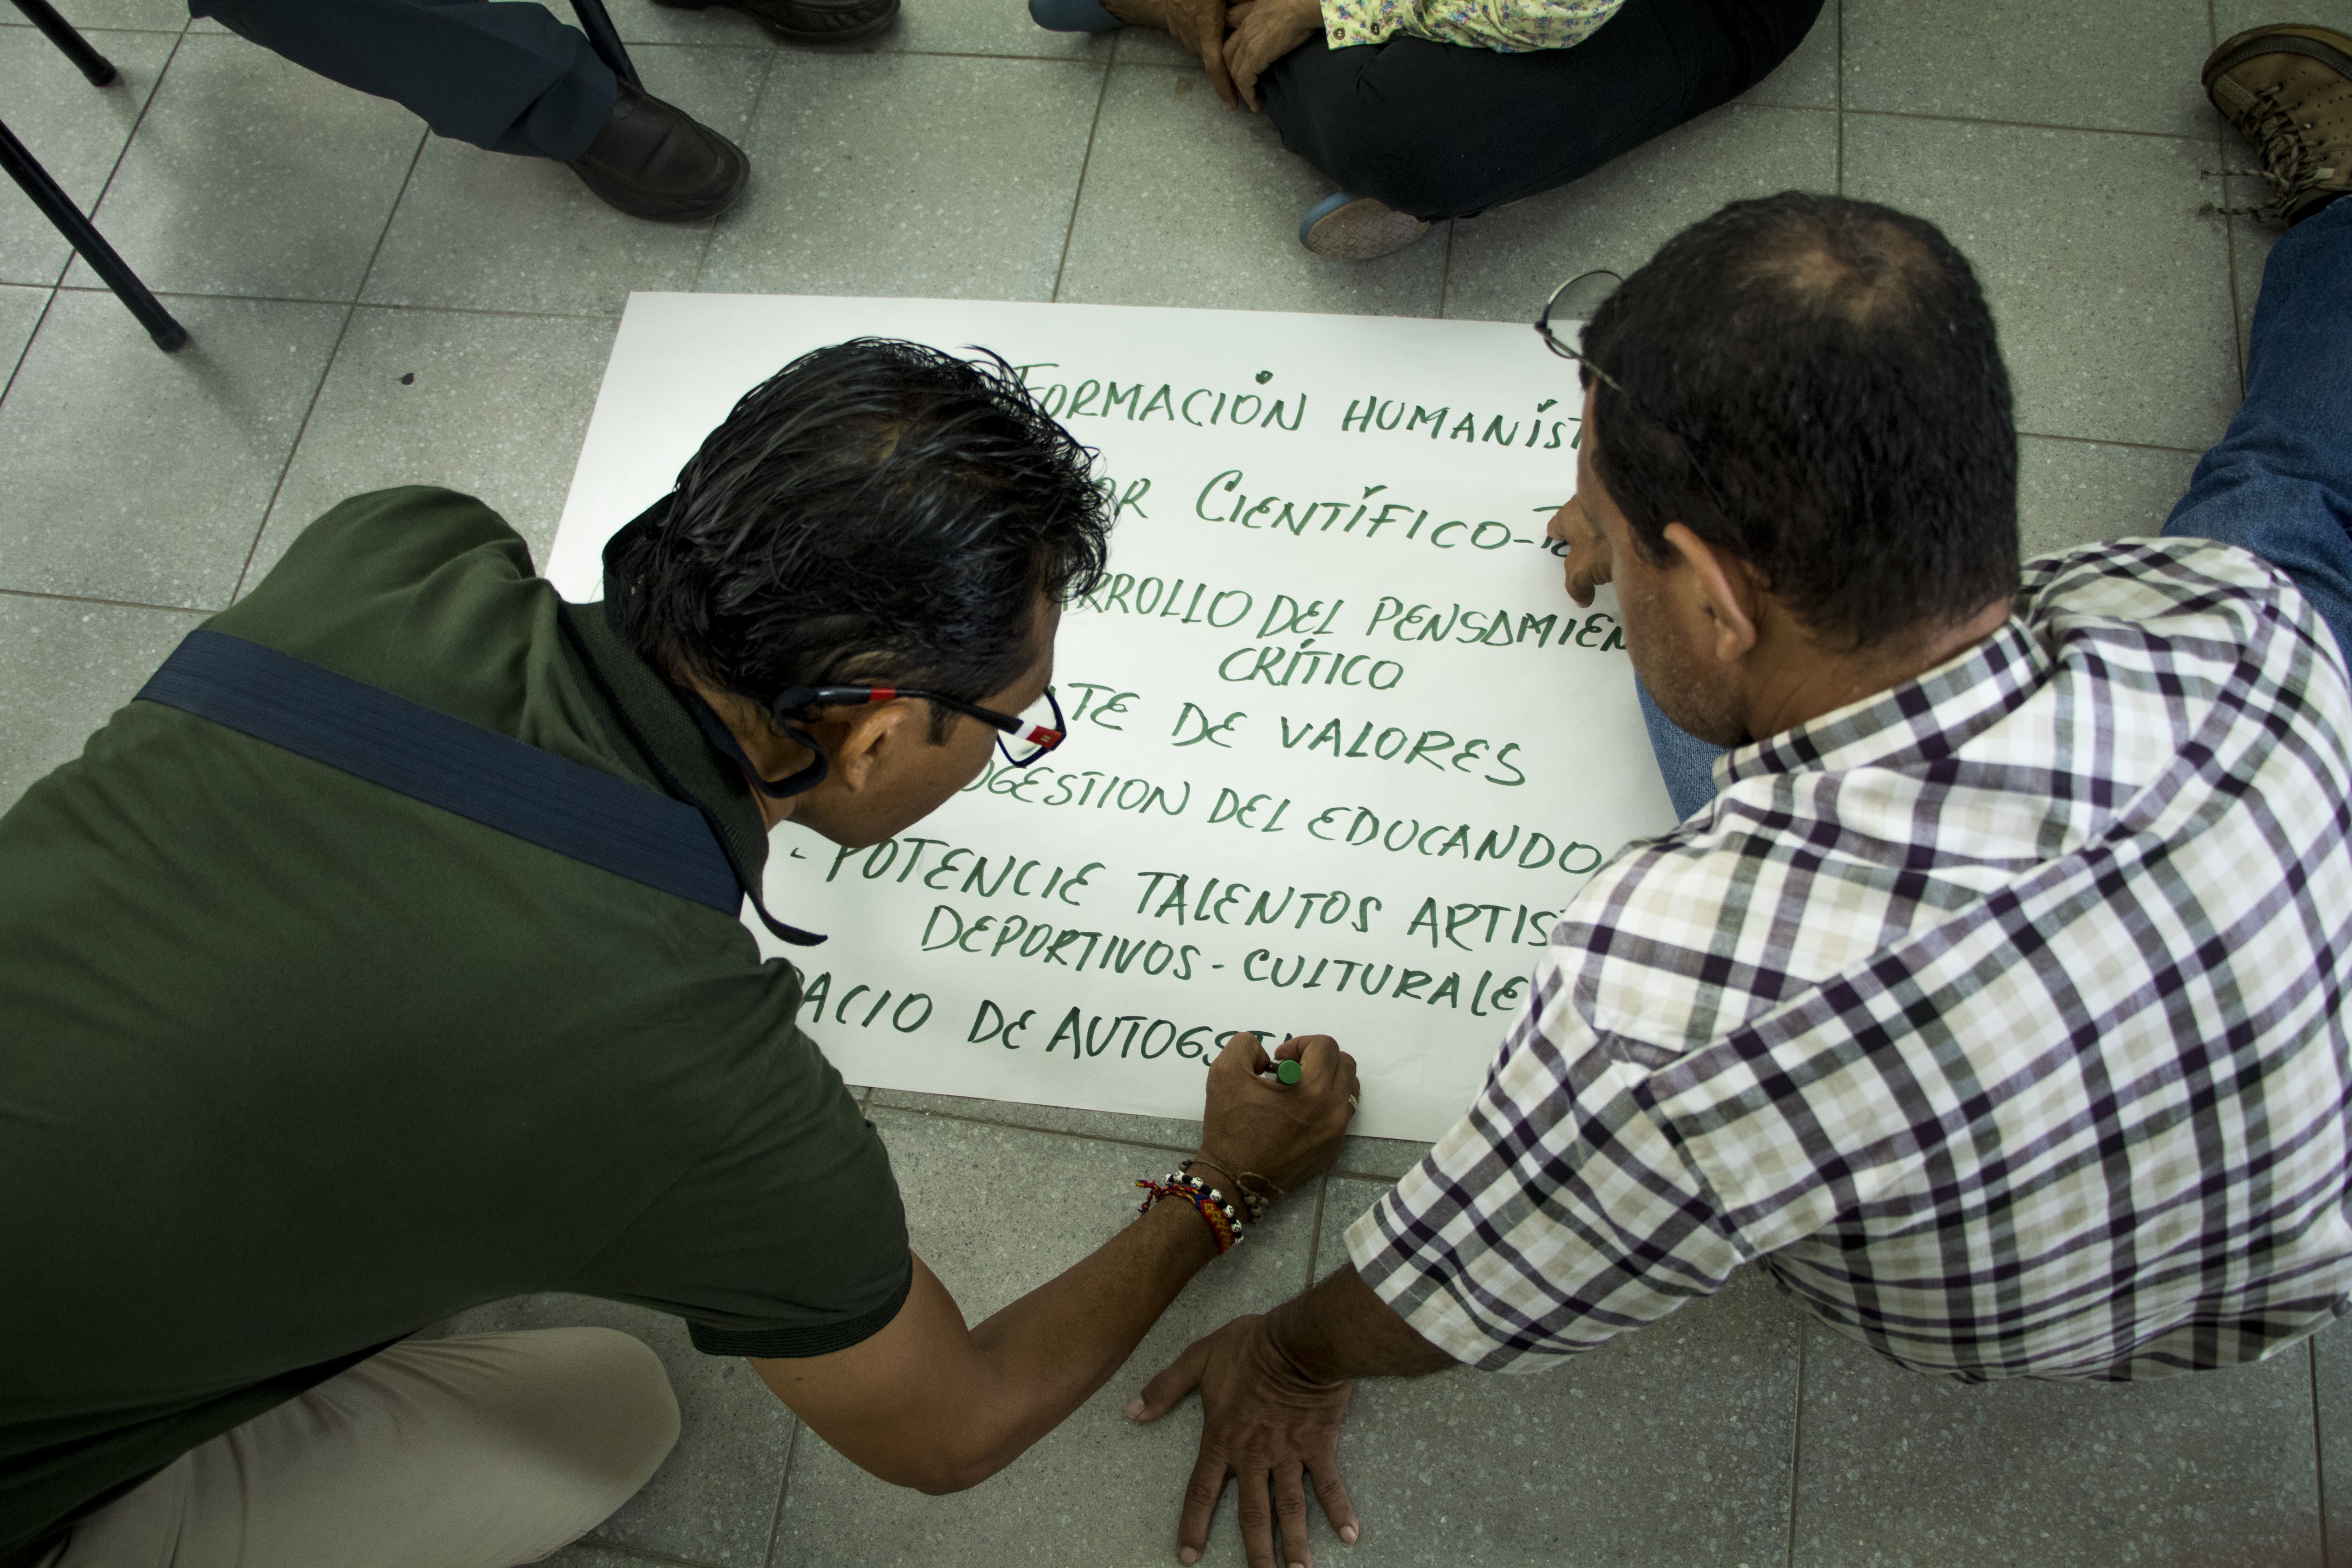 FORMACIÓN HUMANÍST
OR CIENTÍFICO-TE
RROLLO DEL PENSAMIEN
CRÍTICO
ATE DE VALORES
OGESTION DEL EDUCANDO
- POTENCIE TALENTOS ARTIS
DEPORTIVOS - CULTURALE
PACIO DE AUTOGSTI